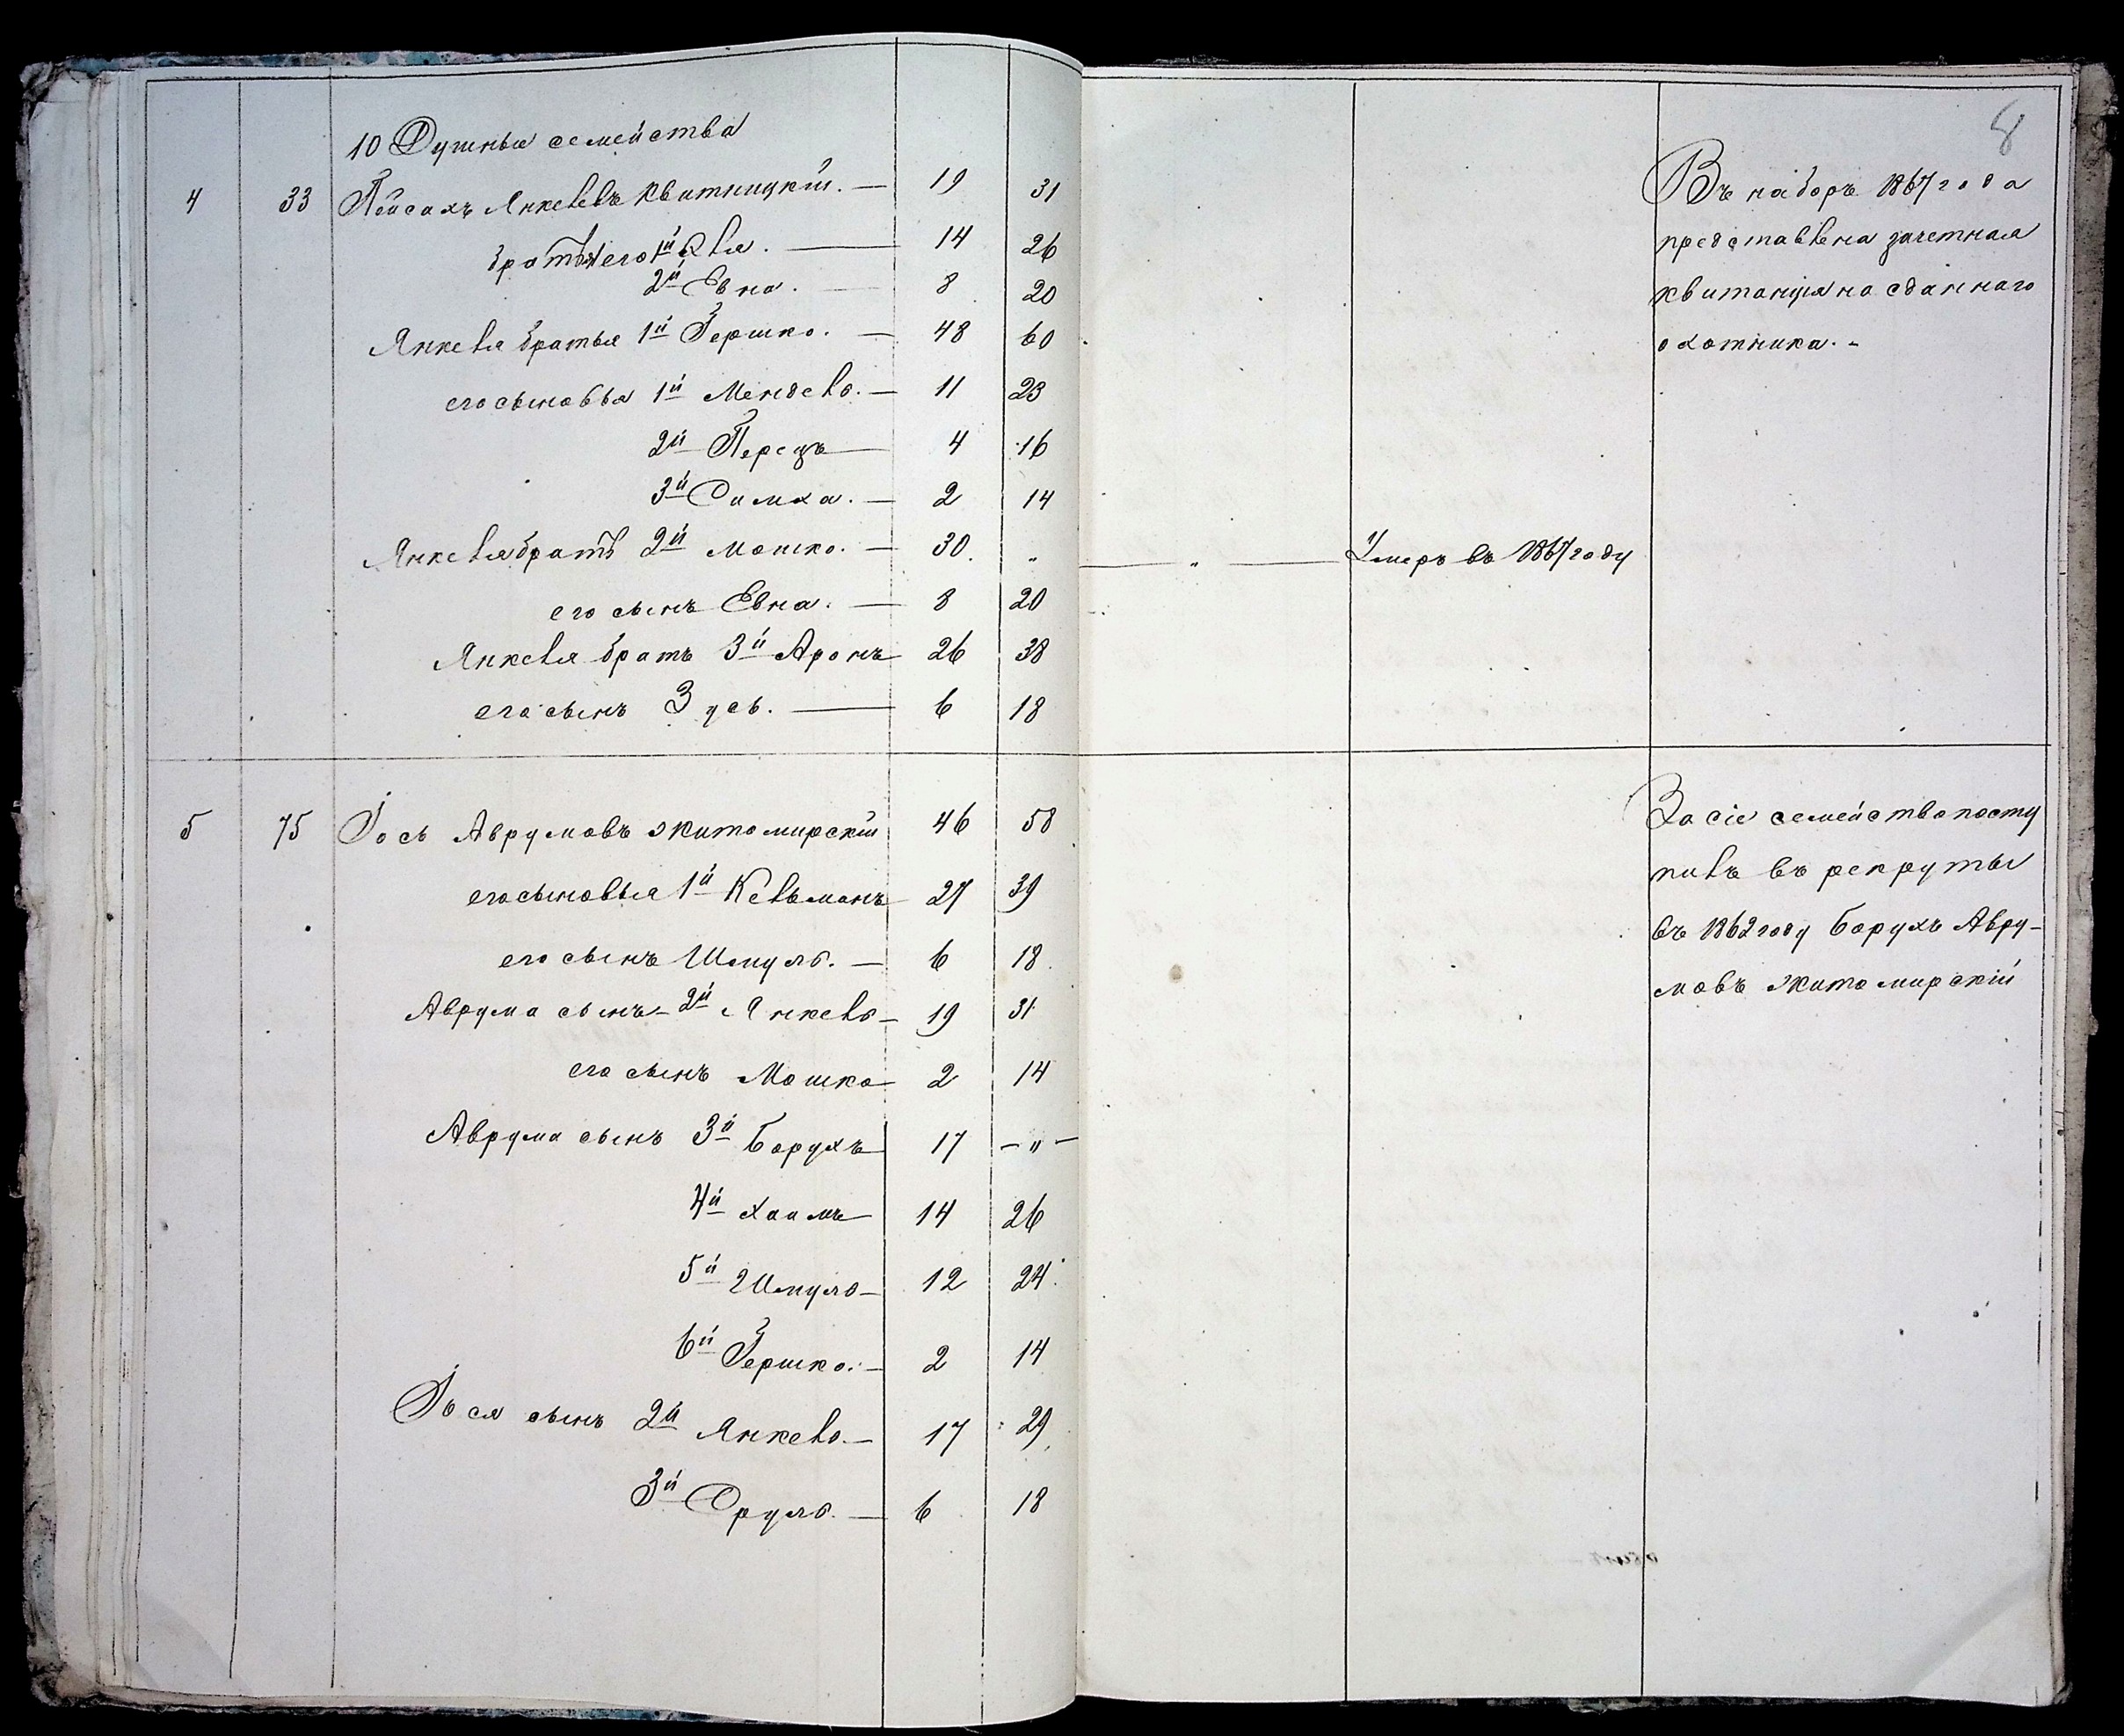 8
10 Душныя семейства
4 33 Пейсахъ Янкелевъ Квитницкій. — 19 31
братья его 1й — 14 26
2й Евна. — 8 20
Янкеля братья 1й Гершко. — 48 60
его сыновья 1й Мендель. — 11 23
2й Перецъ — 4 16
3й Симха. — 2 14
Янкеля братъ 2й Мошко. — 30. " — " — Умеръ въ 1867 году
его сынъ Евна. — 8 20
Янкеля братъ 3й Аронъ 26 38
его сынъ Зусь. — 6 18
Въ наборъ 1867 года
представлена зачетная
квитанція на сданнаго
охотника. -
5 75 Іось Аврумовъ Житомирскій 46 58
его сыновья 1й Кельманъ 27 39
его сынъ Шмуль. — 6 18
Аврума сынъ - 2й Янкель — 19 31
его сынъ Мошко 2 14
Аврума сынъ 3й Борухъ 17 — " —
4й Хаимъ 14 26
5й Шмуль — 12 24
6й Гершко. — 2 14
Іося сынъ 2й Янкель. — 17 29
3й Сруль. — 6 18
За сіе семейство посту
пилъ въ рекруты
въ 1862 году Борухъ Авру-
мовъ Житомирскій